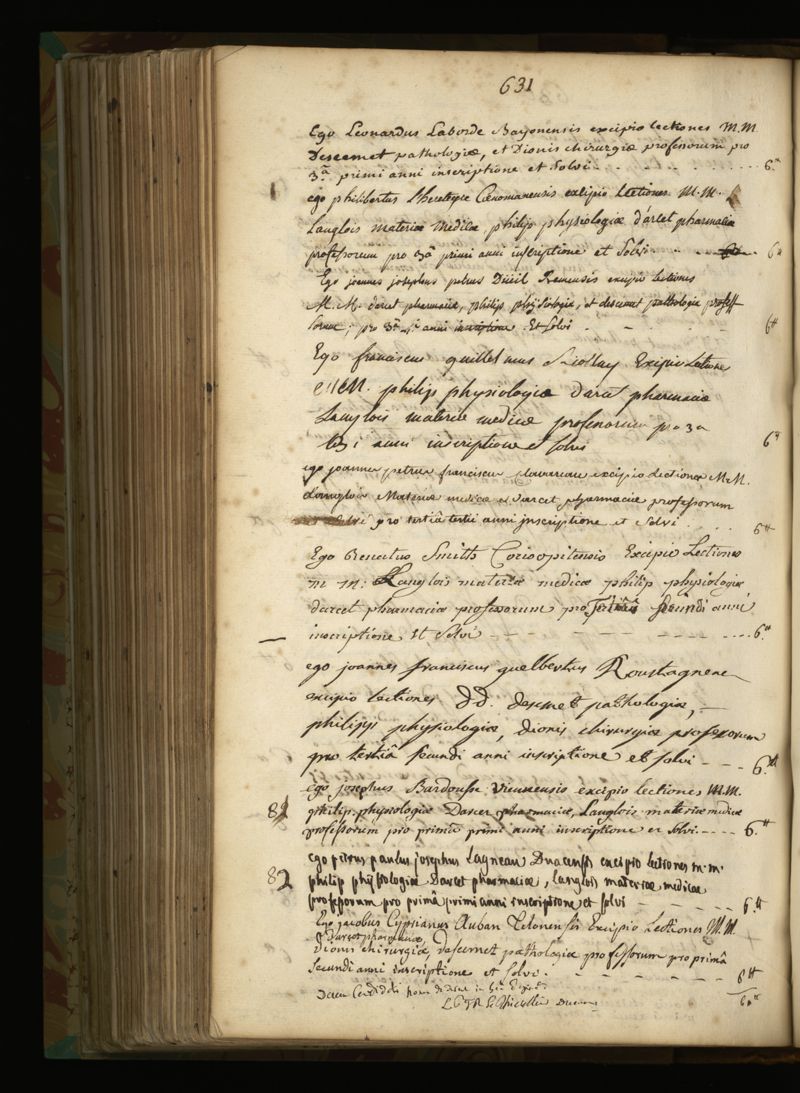 631
Ego Leonardus Laborde Bayonensis excipio lectiones M.M.
Descemet pathologiæ, et Dionis chirurgiæ professorum pro
3.a primi anni inscriptione et Solvi 6.tt
ego philibertus Cænomanensis excipio Lectiones M.M.
Langlois materiæ Medicæ, philip physiologiæ d'arcet pharmaciæ
professorum pro 3â primi anni inscriptione et Solvi 6tt
Ego joannes josephus petrus Remensis excipio lectiones
M.M. darcet pharmaciæ, philip physiologiæ, et descemet pathologiæ profess
sorum, pro 3â anni inscriptione Et solvi 6tt
Ego franciscus guillelmus Excipio Lectione
MM. philip physiologiæ darcet pharmaciæ
Langlois materiæ medicæ professorum pro 3a
anni inscriptione et solvi 6tt
ego joannes petrus franciscus excipio Lectiones MM.
Langlois Materiæ medicæ Darcet pharmaciæ professorum
pro tertiâ tertii anni inscriptione et Solvi 6tt
Ego Renatus Smith Corisopitensis Excipio Lectiones
m m. Langlois materiæ medicæ philip physiologiæ
darcet pharmaciæ professorum pro Tertiâ secundi anni
inscriptione Et Solvi 6.tt
ego joannes franciscus guelbertus
excipio lectiones DD. descemet pathologiæ,
philipp physiologiæ, dionis chirurgiæ professorum
pro tertiâ secundi anni inscriptione et solvi 6.tt
ego josephus Bardousse excipio lectiones M.M.
81 philip physiologiæ Darcet pharmaciæ, Langlois materiæ medicæ
professorum pro primâ primi anni inscriptione et Solvi 6.tt
Ego petrus paulus josephus Lagneau Duacensis excipio lectiones m.m.
82 philip physiologiæ Darcet pharmaciæ, langlois materiæ medicæ
professorum pro primâ primi anni inscriptione et solvi 6.tt
Ego jacobus Cyprianus Auban Telonensis Excipio Lectiones M.M.
Darcet pharmaciæ
Dionis chirurgiæ, descemet pathologiæ professorum pro primâ
secundi anni inscriptione et solvi. 6tt
Decem Candidati
60tt